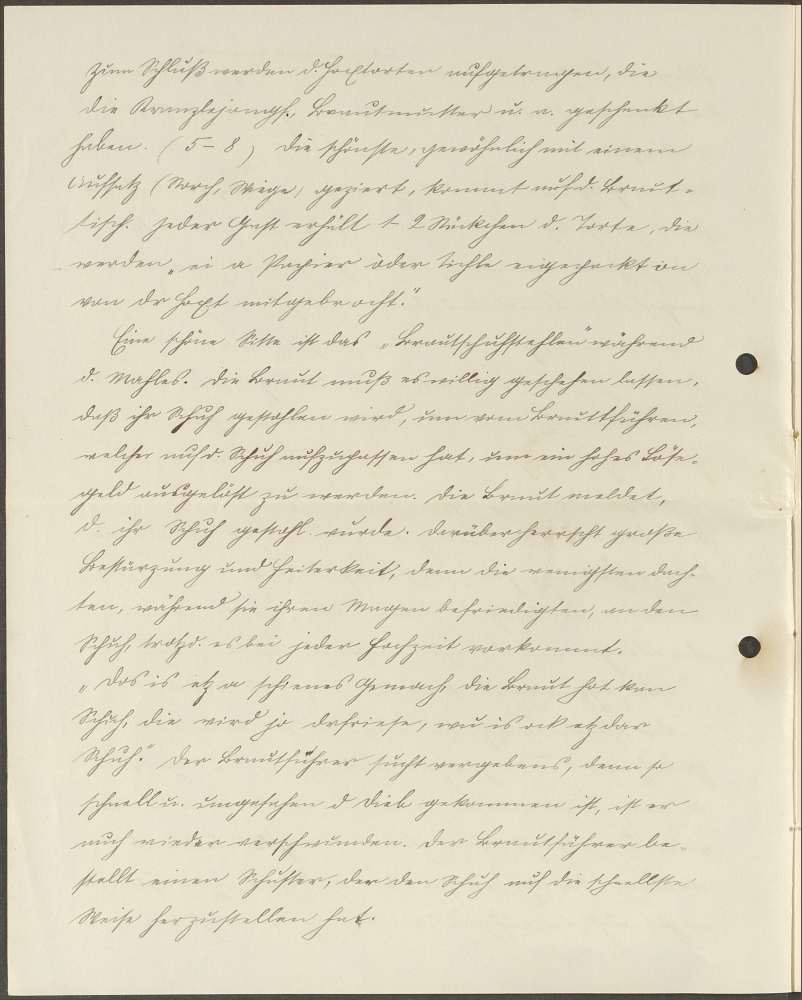 Zum Schluß werden d. Hoxtorten aufgetragen, die
die Kranzlejongf., Brautmutter u. a. geschenkt
haben. (5-8) Die schönste, gewöhnlich mit einem
Aufsatz (Storch, Wiege) geziert, kommt auf d. Braut-
tisch. Jeder Gast erhält 1-2 Stückchen d. Torte, die
werden „ei a Papier oder Tichle eigepackt on
von dr Hoxt mitgebrocht."
Eine schöne Sitte ist das „Brautschuhstehlen" während
d. Mahles. Die Braut muß es willig geschehen lassen,
daß ihr Schuh gestohlen wird, um vom Brautführer,
welcher auf d. Schuh aufzupassen hat, um ein hohes Löse-
geld ausgelöst zu werden. Die Braut meldet,
d. ihr Schuh gestohl. wurde. Darüber herrscht große
Bestürzung und Heiterkeit, denn die wenigsten dach-
ten, während sie ihren Magen befriedigten, an den
Schuh, trotzd. es bei jeder Hochzeit vorkommt.
„Dos is etz a schienes Gemach, die Braut hot kan
Schuh, die wird jo drfriese, wu is ock etz dar
Schuh." Der Brautführer sucht vergebens, denn so
schnell u. ungesehen d Dieb gekommen ist, ist er
auch wieder verschwunden. Der Brautführer be-
stellt einen Schuster, der den Schuh auf die schnellste
Weise herzustellen hat.